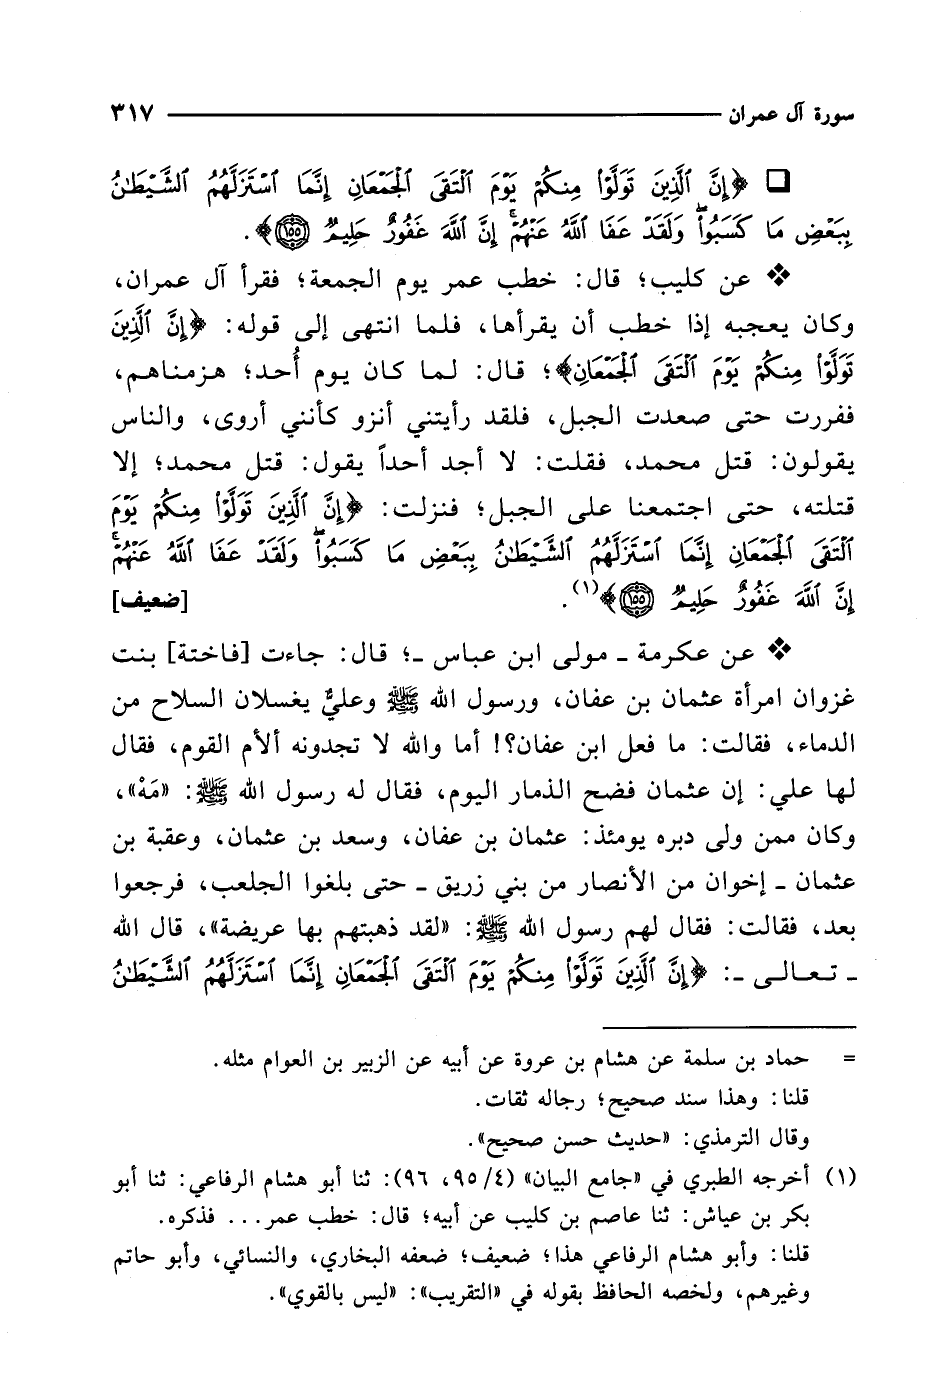 سورة آل عمران ٣١٧
❑ ﴿إِنَّ ٱلَّذِينَ تَوَلَّوْا۟ مِنكُمْ يَوْمَ ٱلْتَقَى ٱلْجَمْعَانِ إِنَّمَا ٱسْتَزَلَّهُمُ ٱلشَّيْطَـٰنُ
بِبَعْضِ مَا كَسَبُوا۟ ۖ وَلَقَدْ عَفَا ٱللَّهُ عَنْهُمْ ۗ إِنَّ ٱللَّهَ غَفُورٌ حَلِيمٌ ﴿١٥٥﴾﴾.
❖ عن كليب؛ قال: خطب عمر يوم الجمعة؛ فقرأ آل عمران،
وكان يعجبه إذا خطب أن يقرأها، فلما انتهى إلى قوله: ﴿إِنَّ ٱلَّذِينَ
تَوَلَّوْا۟ مِنكُمْ يَوْمَ ٱلْتَقَى ٱلْجَمْعَانِ﴾؛ قال: لما كان يوم أُحد؛ هزمناهم،
ففررت حتى صعدت الجبل، فلقد رأيتني أنزو كأنني أروى، والناس
يقولون: قتل محمد، فقلت: لا أجد أحداً يقول: قتل محمد؛ إلا
قتلته، حتى اجتمعنا على الجبل؛ فنزلت: ﴿إِنَّ ٱلَّذِينَ تَوَلَّوْا۟ مِنكُمْ يَوْمَ
ٱلْتَقَى ٱلْجَمْعَانِ إِنَّمَا ٱسْتَزَلَّهُمُ ٱلشَّيْطَـٰنُ بِبَعْضِ مَا كَسَبُوا۟ ۖ وَلَقَدْ عَفَا ٱللَّهُ عَنْهُمْ ۗ
إِنَّ ٱللَّهَ غَفُورٌ حَلِيمٌ ﴿١٥٥﴾﴾(١). [ضعيف]
❖ عن عكرمة ـ مولى ابن عباس ـ؛ قال: جاءت [فاختة] بنت
غزوان امرأة عثمان بن عفان، ورسول الله ﷺ وعليٌّ يغسلان السلاح من
الدماء، فقالت: ما فعل ابن عفان؟! أما والله لا تجدونه ألأم القوم، فقال
لها علي: إن عثمان فضح الذمار اليوم، فقال له رسول الله ﷺ: «مَهْ»،
وكان ممن ولى دبره يومئذ: عثمان بن عفان، وسعد بن عثمان، وعقبة بن
عثمان ـ إخوان من الأنصار من بني زريق ـ حتى بلغوا الجلعب، فرجعوا
بعد، فقالت: فقال لهم رسول الله ﷺ: «لقد ذهبتهم بها عريضة»، قال الله
ـ تعالى ـ: ﴿إِنَّ ٱلَّذِينَ تَوَلَّوْا۟ مِنكُمْ يَوْمَ ٱلْتَقَى ٱلْجَمْعَانِ إِنَّمَا ٱسْتَزَلَّهُمُ ٱلشَّيْطَـٰنُ
= حماد بن سلمة عن هشام بن عروة عن أبيه عن الزبير بن العوام مثله.
قلنا: وهذا سند صحيح؛ رجاله ثقات.
وقال الترمذي: «حديث حسن صحيح».
(١) أخرجه الطبري في «جامع البيان» (٤/ ٩٥، ٩٦): ثنا أبو هشام الرفاعي: ثنا أبو
بكر بن عياش: ثنا عاصم بن كليب عن أبيه؛ قال: خطب عمر... فذكره.
قلنا: وأبو هشام الرفاعي هذا؛ ضعيف؛ ضعفه البخاري، والنسائي، وأبو حاتم
وغيرهم، ولخصه الحافظ بقوله في «التقريب»: «ليس بالقوي».